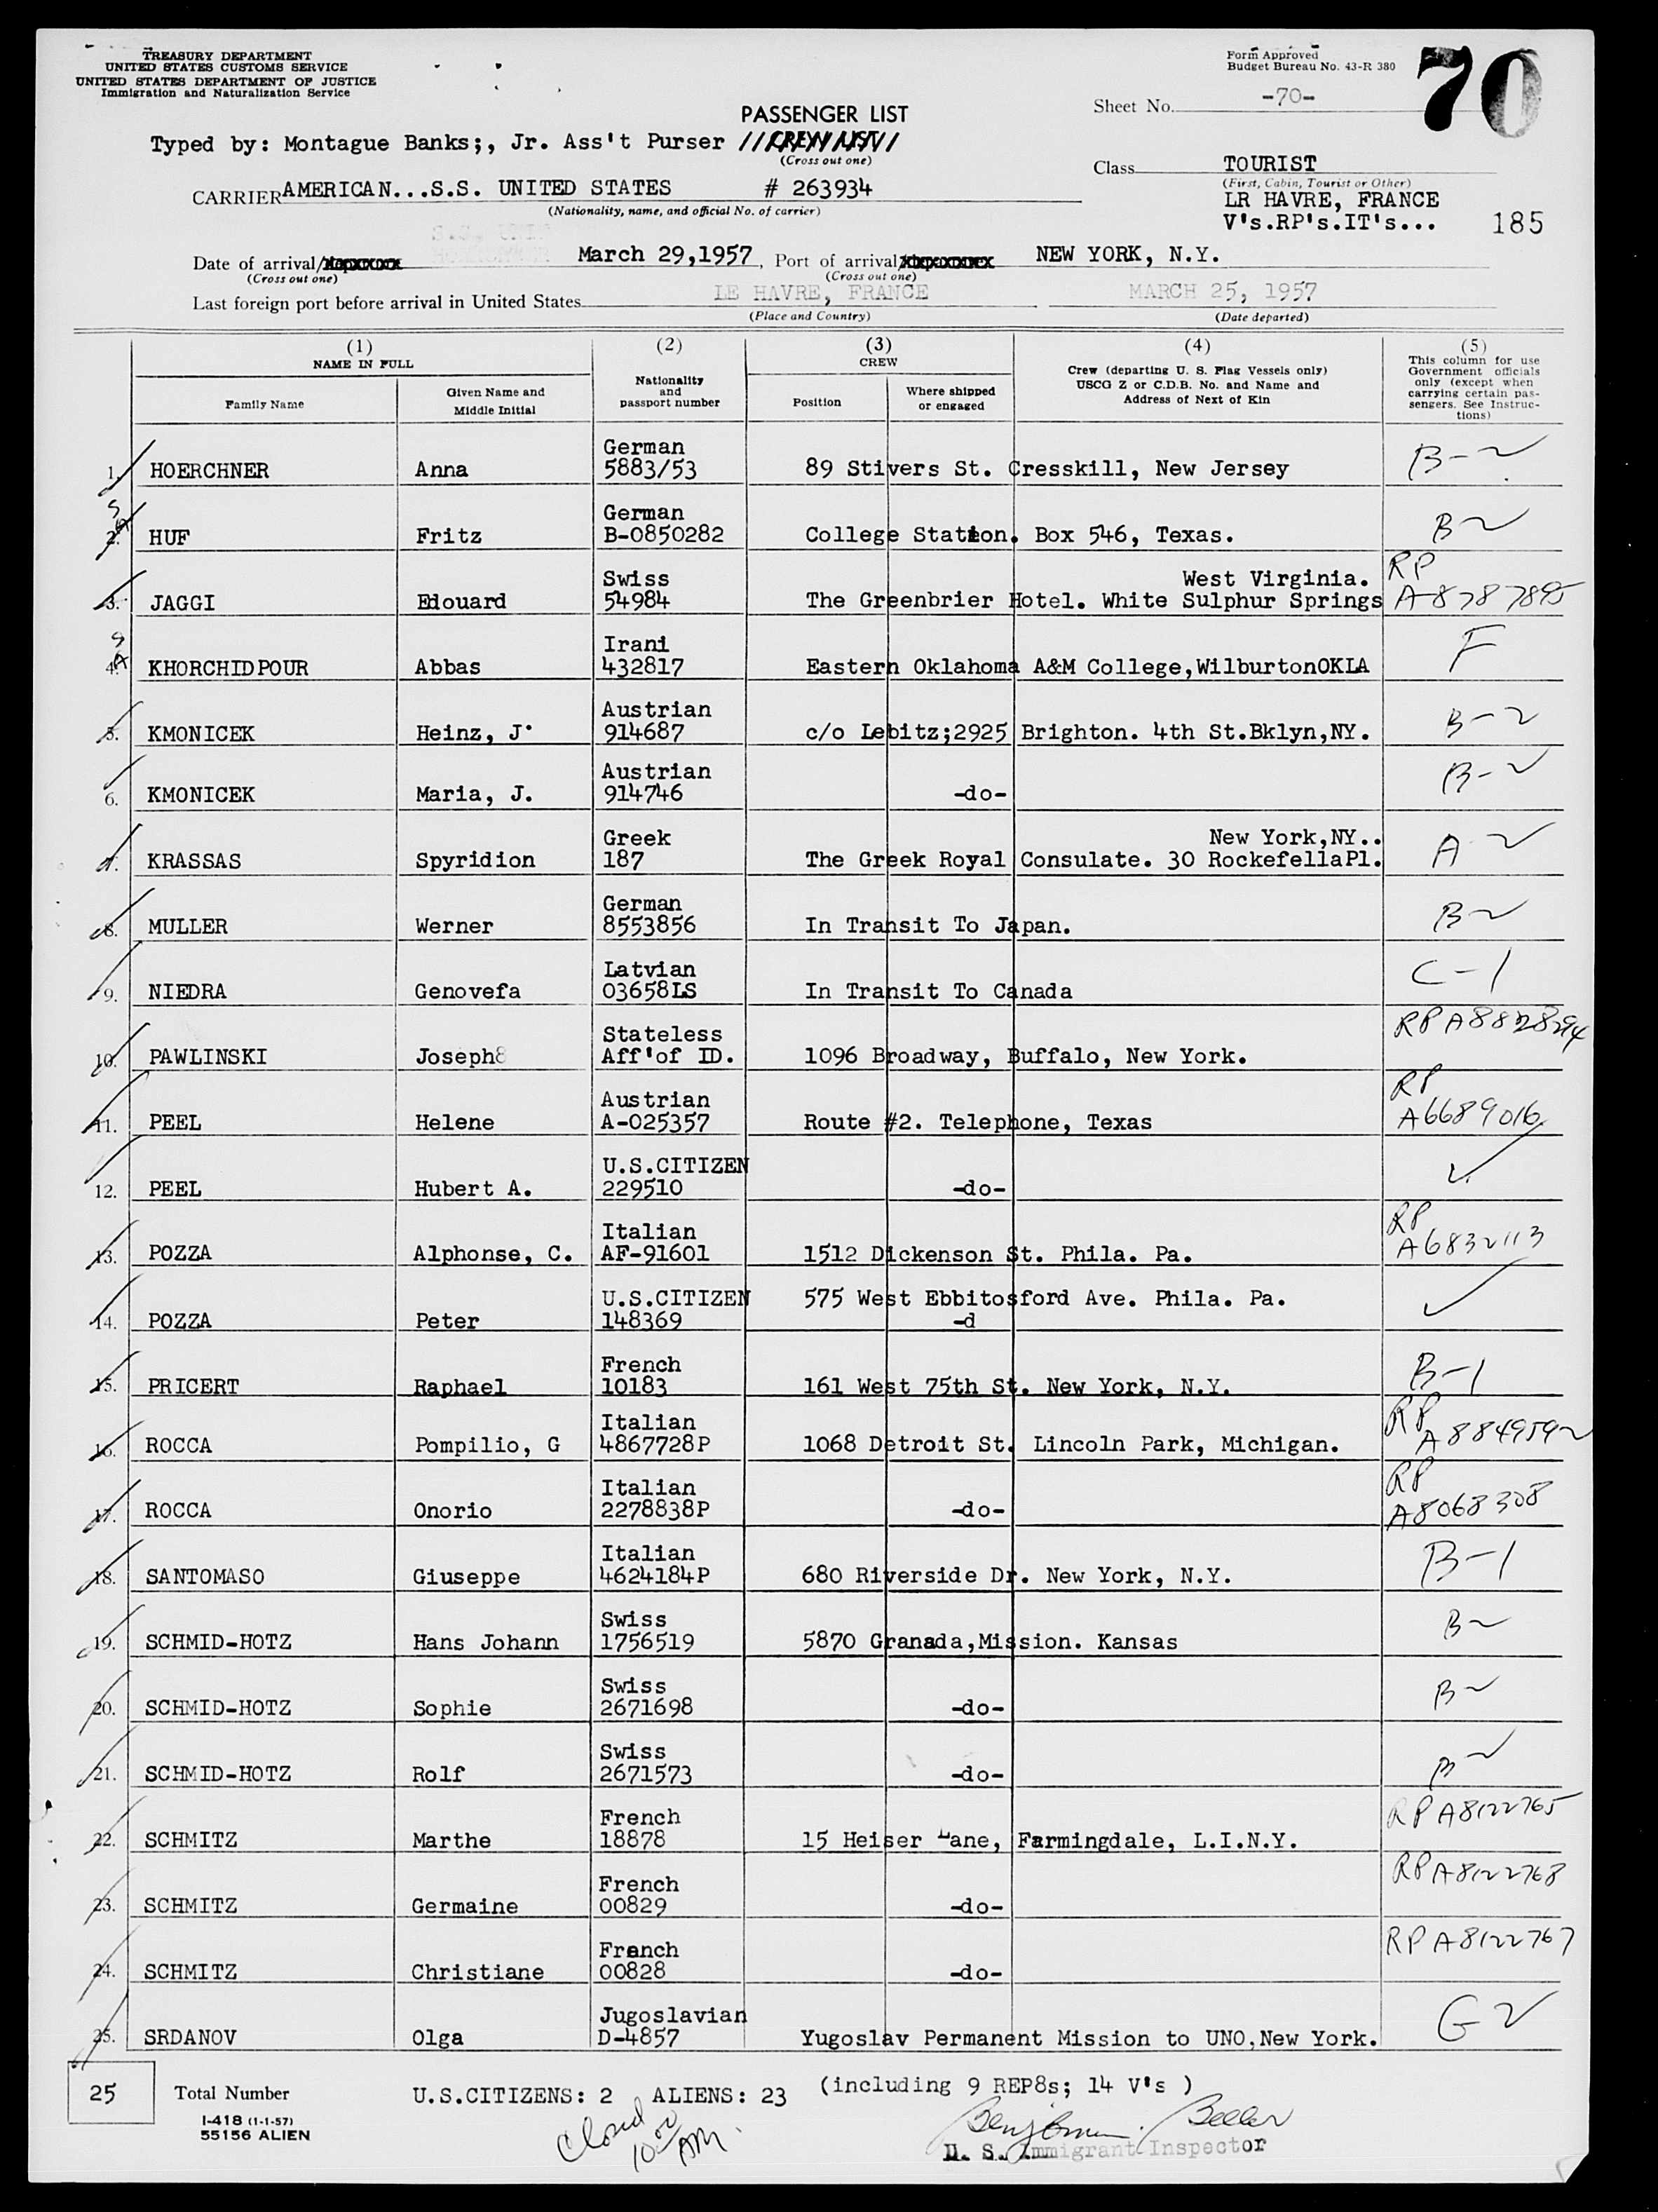 TREASURY DEPARTMENT
UNITED STATES CUSTOMS SERVICE
UNITED STATES DEPARTMENT OF JUSTICE
Immigration and Naturalization Service
Form Approved
Budget Bureau No. 43-R 380
70
Sheet No. -70-
PASSENGER LIST
Typed by: Montague Banks;, Jr. Ass't Purser //CREW LIST//
(Cross out one)
Class TOURIST
(First, Cabin, Tourist or Other)
CARRIER AMERICAN...S.S. UNITED STATES # 263934
(Nationality, name, and official No. of carrier)
LR HAVRE, FRANCE
V's.RP's.IT's... 185
Date of arrival/ March 29,1957, Port of arrival/ NEW YORK, N.Y.
(Cross out one) (Cross out one)
Last foreign port before arrival in United States LE HAVRE, FRANCE MARCH 25, 1957
(Place and Country) (Date departed)
(1) NAME IN FULL
Family Name
Given Name and Middle Initial
(2) Nationality and passport number
(3) CREW
Position
Where shipped or engaged
(4) Crew (departing U. S. Flag Vessels only) USCG Z or C.D.B. No. and Name and Address of Next of Kin
(5) This column for use Government officials only (except when carrying certain passengers. See Instructions)
German
1. HOERCHNER Anna 5883/53 89 Stivers St. Cresskill, New Jersey B-2
German
2. HUF Fritz B-0850282 College Station. Box 546, Texas. B2
Swiss West Virginia. RP
3. JAGGI Edouard 54984 The Greenbrier Hotel. White Sulphur Springs A-8787895
Irani
4. KHORCHIDPOUR Abbas 432817 Eastern Oklahoma A&M College,WilburtonOKLA F
Austrian
5. KMONICEK Heinz, J. 914687 c/o Lebitz;2925 Brighton. 4th St.Bklyn,NY. B-2
Austrian
6. KMONICEK Maria, J. 914746 -do- B-2
Greek New York,NY..
7. KRASSAS Spyridion 187 The Greek Royal Consulate. 30 RockefellaPl. A-2
German
8. MULLER Werner 8553856 In Transit To Japan. B2
Latvian
9. NIEDRA Genovefa 03658LS In Transit To Canada C-1
Stateless
10. PAWLINSKI Joseph8 Aff'of ID. 1096 Broadway, Buffalo, New York. RP
Austrian RP
11. PEEL Helene A-025357 Route #2. Telephone, Texas A6689016
U.S.CITIZEN
12. PEEL Hubert A. 229510 -do-
Italian RP
13. POZZA Alphonse, C. AF-91601 1512 Dickenson St. Phila. Pa. A6832113
U.S.CITIZEN 575 West Ebbitosford Ave. Phila. Pa.
14. POZZA Peter 148369 -d
French
15. PRICERT Raphael 10183 161 West 75th St. New York, N.Y. B-1
Italian RP
16. ROCCA Pompilio, G 4867728P 1068 Detroit St. Lincoln Park, Michigan. A8849592
Italian RP
17. ROCCA Onorio 2278838P -do- A8068308
Italian
18. SANTOMASO Giuseppe 4624184P 680 Riverside Dr. New York, N.Y. B-1
Swiss
19. SCHMID-HOTZ Hans Johann 1756519 5870 Granada,Mission. Kansas B2
Swiss
20. SCHMID-HOTZ Sophie 2671698 -do- B2
Swiss
21. SCHMID-HOTZ Rolf 2671573 -do- B2
French
22. SCHMITZ Marthe 18878 15 Heiser Lane, Farmingdale, L.I.N.Y. RP A8122765
French
23. SCHMITZ Germaine 00829 -do- RP A8122768
French
24. SCHMITZ Christiane 00828 -do- RP A8122767
Jugoslavian
25. SRDANOV Olga D-4857 Yugoslav Permanent Mission to UNO,New York. G2
25 Total Number U.S.CITIZENS: 2 ALIENS: 23 (including 9 REP8s; 14 V's )
I-418 (1-1-57)
55156 ALIEN
Closed 10 00 AM.
Benjamin Beller
U. S. Immigrant Inspector